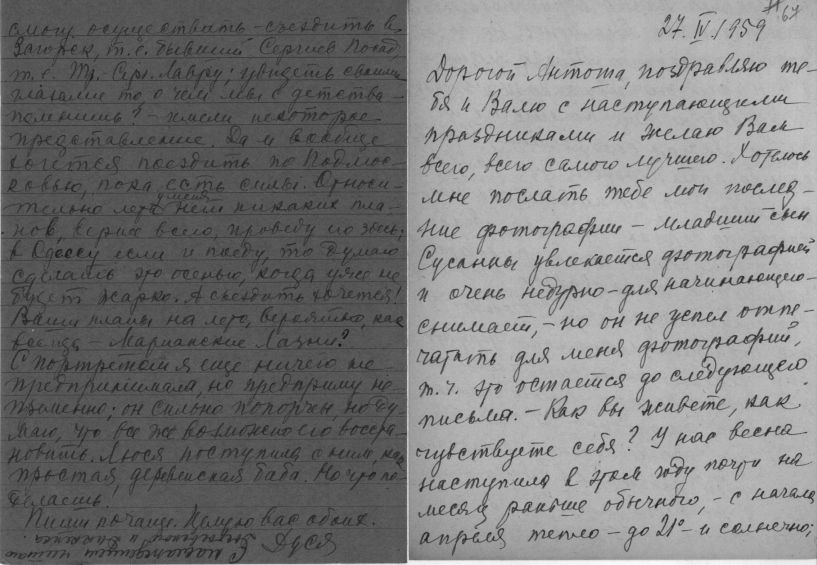 смогу осуществить – съездить в
Загорск, т.е. бывший Сергиев Посад,
т.е. Тр. Сер. Лавру; увидеть своими
глазами то о чем мы с детства –
помнишь? – имели некоторое
представление. Да и вообще
хочется поездить по Подмос-
ковью, пока есть силы. Относи-
тельно лета у меня нет никаких пла-
нов, верней всего, проведу его здесь;
в Одессу если и поеду, то думаю
сделать это осенью, когда уже не
будет жарко. А съездить хочется!
Ваши планы на лето, вероятно, как
всегда – Марианские Лазни?
С портретом я еще ничего не
предпринимала, но предприму не-
пременно; он сильно попорчен, но ду-
маю, что все же возможно его восста-
новить. Люся поступила с ним, как
простая, деревенская баба. Но что по-
делаешь.
Пиши почаще. Целую вас обоих.
Дуся
С наслаждением читаю
и Диккенса.
№67
27.IV.1959
Дорогой Антоша, поздравляю те-
бя и Валю с наступающими
праздниками и желаю Вам
всего, всего самого лучшего. Хотелось
мне послать тебе мои послед-
ние фотографии – младший сын
Сусанны увлекается фотографией
и очень недурно – для начинающего –
снимает, – но он не успел отпе-
чатать для меня фотографий,
т.ч. это остается до следующего
письма. – Как вы живете, как
чувствуете себя? У нас весна
наступила в этом году почти на
месяц раньше обычного, – с начала
апреля тепло – до 21° – и солнечно;